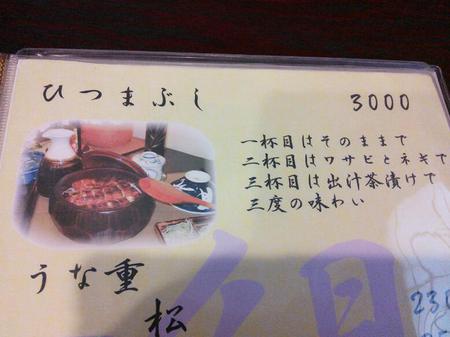 ひつまぶし 3000
一杯目はそのままで
二杯目はワサビとネギで
三杯目は出汁茶漬けで
三度の味わい
うな重
松